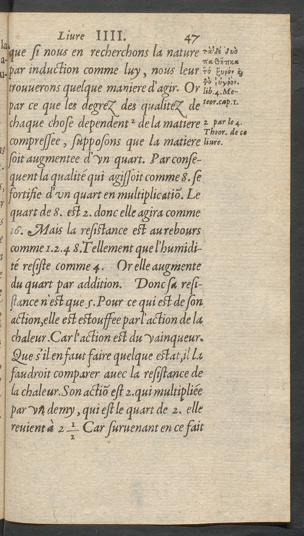 Liure IIII. 47
que si nous en recherchons la nature
par induction comme luy, nous leur
trouuerons quelque maniere d'agir. Or
par ce que les degrez des qualitez de
chaque chose dependent² de la matiere
compressee, supposons que la matiere
soit augmentee d'vn quart. Par conse-
quent la qualité qui agissoit comme 8. se
fortifie d'vn quart en multiplicatiõ. Le
quart de 8. est 2. donc elle agira comme
16. Mais la resistance est au rebours
comme 1. 2. 4 8. Tellement que l'humidi-
té resiste comme 4. Or elle augmente
du quart par addition. Donc sa resi-
stance n'est que 5. Pour ce qui est de son
action, elle est estouffee par l'action de la
chaleur. Car l'action est du vainqueur.
Que s'il en faut faire quelque estat, il la
faudroit comparer auec la resistance de
la chaleur. Son actiõ est 2. qui multipliée
par vn demy, qui est le quart de 2. elle
reuient à 2 1/2 Car suruenant en ce fait
lib. 4. Me-
teor. cap. 1.
2 par le 4.
Theor. de ce
liure.